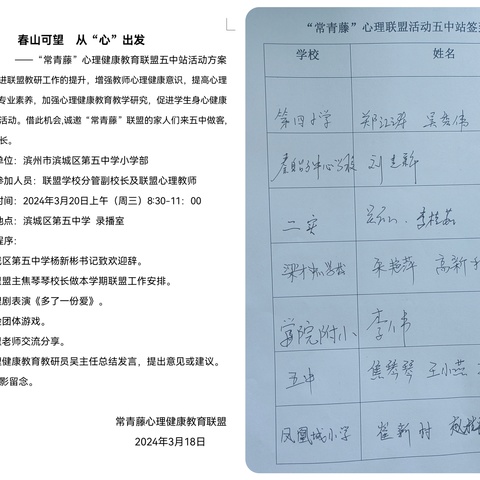 春山可望 从“心”出发
——“常青藤”心理健康教育联盟五中站活动方案
进联盟教研工作的提升，增强教师心理健康意识，提高心理
专业素养，加强心理健康教育教学研究，促进学生身心健康
活动。借此机会,诚邀“常青藤”联盟的家人们来五中做客，
长。
单位：滨州市滨城区第五中学小学部
参加人员：联盟学校分管副校长及联盟心理教师
时间：2024年3月20日上午（周三）8:30-11：00
地点：滨城区第五中学 录播室
程序：
城区第五中学杨新彬书记致欢迎辞。
盟主焦琴琴校长做本学期联盟工作安排。
理剧表演《多了一份爱》。
团体游戏。
老师交流分享。
理健康教育教研员吴主任总结发言，提出意见或建议。
影留念。
常青藤心理健康教育联盟
2024年3月18日
“常青藤”心理联盟活动五中站签
学校 姓名
第四小学 郑江涛
秦皇台中心学校 刘
二实 李桂
梁才中心学校 高新
学院附小 李
五中 焦琴琴 王小燕
凤凰城小学 崔新村